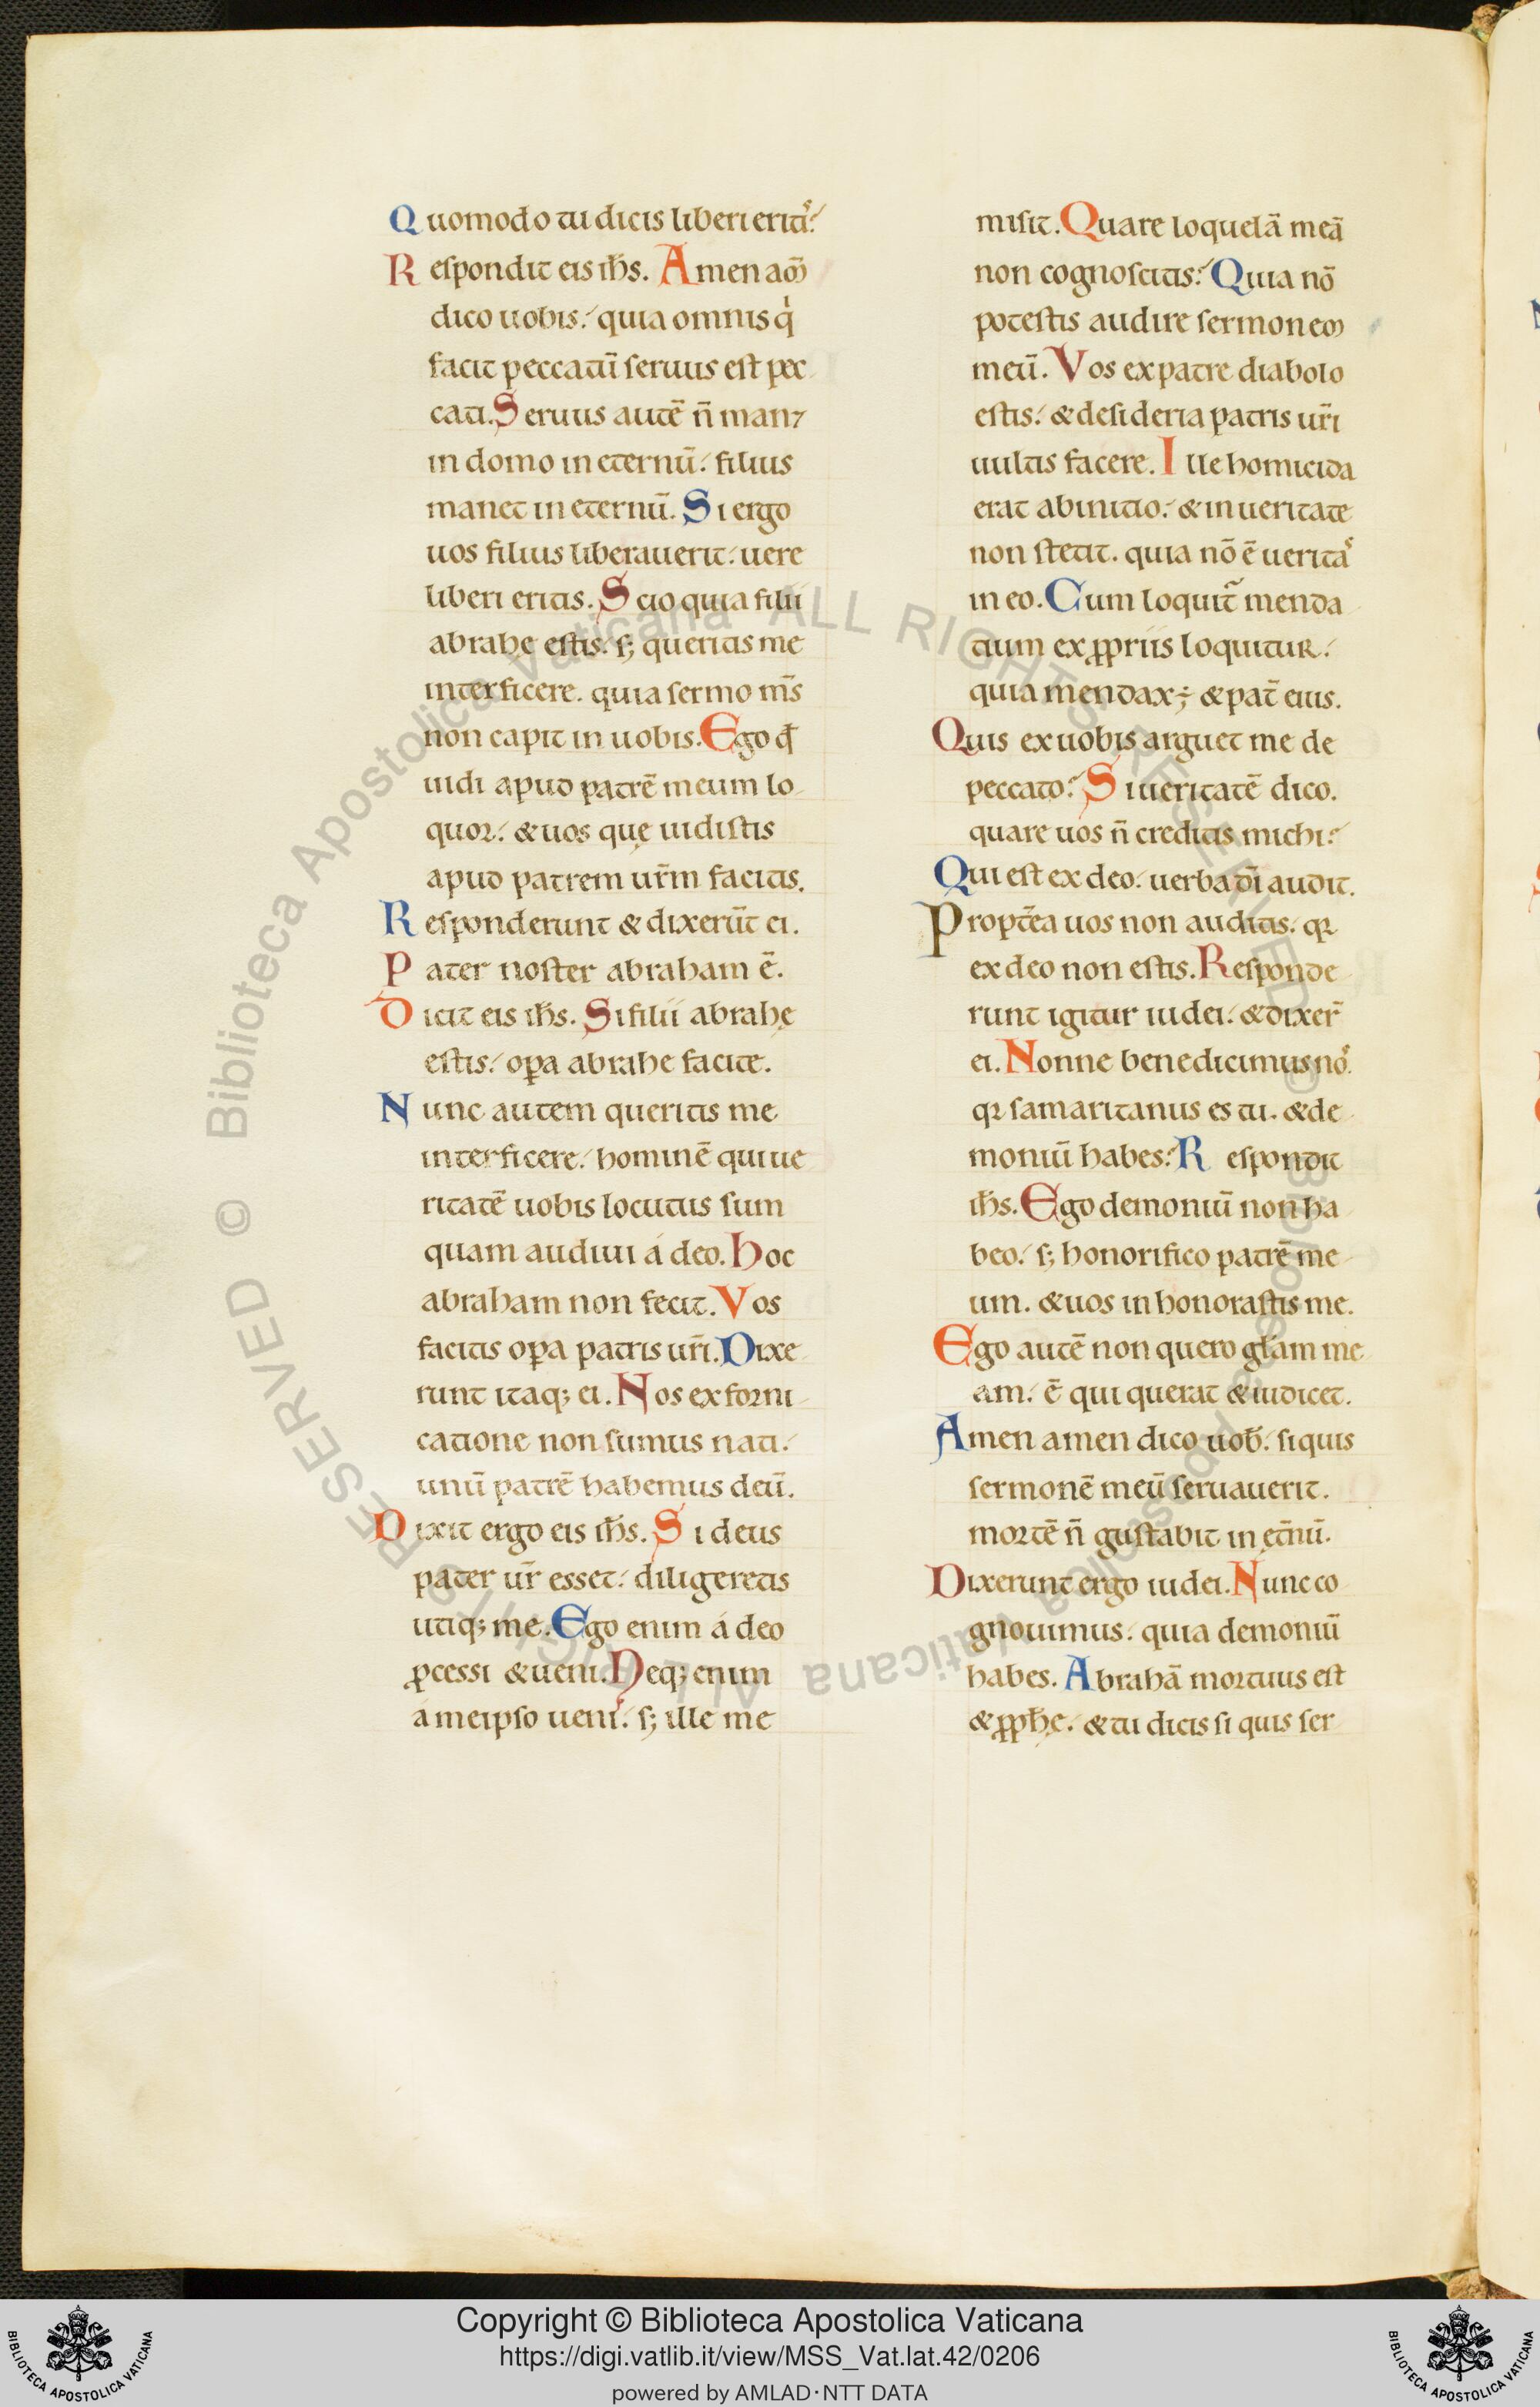 Quomodo tu dicis liberi eritˢ?
Respondit eis ihs̄. Amen am̄
dico uobis. quia omnis qⁱ
facit peccatū seruus est pec
cati. Seruus autē n̄ man⁊
in domo in eternū. filius
manet in eternū. Si ergo
uos filius liberauerit. uere
liberi eritis. Scio quia filii
abrahę estis. s; queritis me
interficere. quia sermo ms̄
non capit in uobis. Ego qđ
uidi apud patrē meum lo
quor. & uos quę uidistis
apud patrem urm̄ facitis.
Responderunt & dixerūt ei.
Pater noster abraham ē.
Dicit eis ihs̄. Si filii abrahę
estis. oꝑa abrahe facite.
Nunc autem queritis me
interficere. hominē qui ue
ritatē uobis locutus sum
quam audiui á deo. Hoc
abraham non fecit. Vos
facitis oꝑa patris urī. Dixe
runt itaq; ei. Nos ex forni
catione non sumus nati.
unū patrē habemus deū.
Dixit ergo eis ihs̄. Si deus
pater ur̄ esset. diligeretis
utiq; me. Ego enim á deo
ꝓcessi & ueni. Neq; enim
a meipso ueni. s; ille me
misit. Quare loquelā meā
non cognoscitis? Quia nō
potestis audire sermonem
meū. Vos ex patre diabolo
estis. & desideria patris urī
uultis facere. Ille homicida
erat ab initio. & in ueritate
non stetit. quia nō ē ueritaˢ
in eo. Cum loquit̄ menda
cium ex ꝓpriis loquitur.
quia mendax ÷ & pat̄ eius.
Quis ex uobis arguet me de
peccato? Si ueritatē dico.
quare uos n̄ creditis michi?
Qui est ex deo. uerba dī audit.
Propt̄ea uos non auditis. qꝛ
ex deo non estis. Responde
runt igitur iudei. & dixer̄
ei. Nonne bene dicimus noˢ.
qꝛ samaritanus es tu. & de
moniū habes? Respondit
ihs̄. Ego demoniū non ha
beo. s; honorifico patrē me
um. & uos inhonorastis me.
Ego autē non quero glam̄ me
am. ē qui querat & iudicet.
Amen amen dico uob̄. si quis
sermonē meū seruauerit.
mortē n̄ gustabit in et̄nū.
Dixerunt ergo iudei. Nunc co
gnouimus. quia demoniū
habes. Abrahā mortuus est
& ꝓph̄ę. & tu dicis si quis ser
Copyright © Biblioteca Apostolica Vaticana
https://digi.vatlib.it/view/MSS_Vat.lat.42/0206
powered by AMLAD·NTT DATA